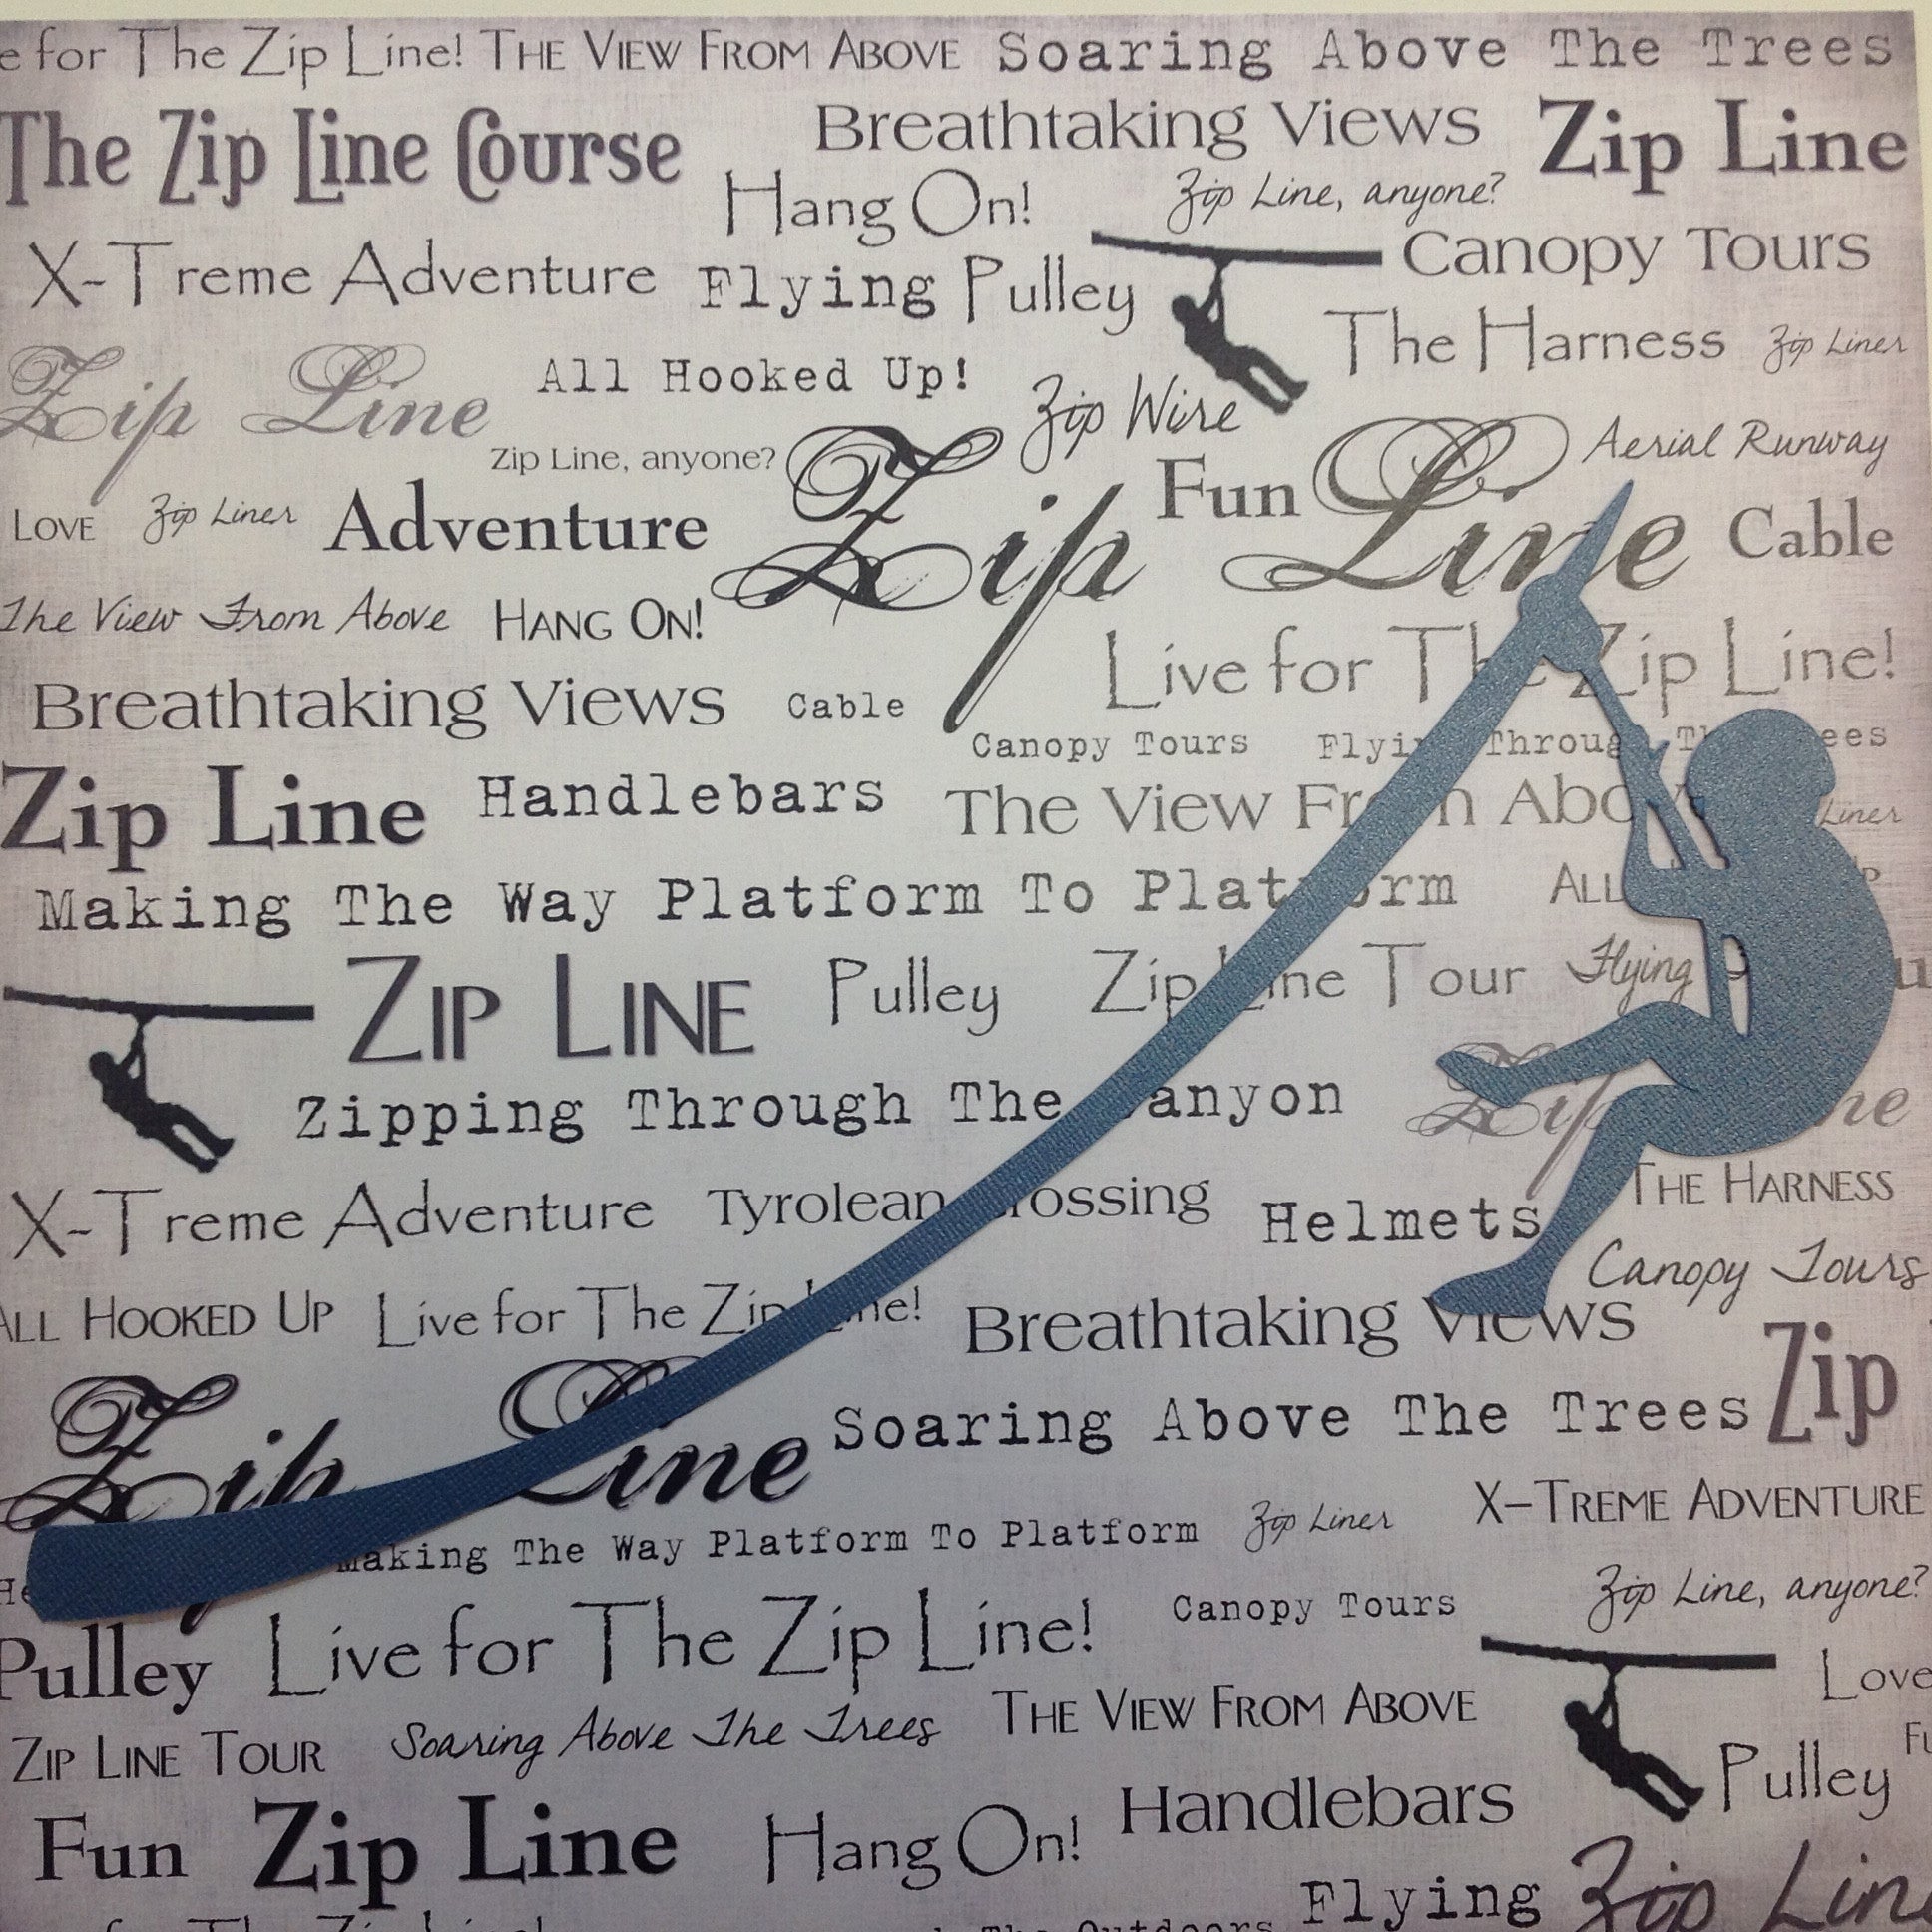 e for The Zip Line! THE VIEW FROM ABOVE Soaring Above The Trees
The Zip Line Course Breathtaking Views Zip Line
Hang On! Zip Line, anyone?
X-Treme Adventure Flying Pulley Canopy Tours
The Harness Zip Liner
Zip Line All Hooked Up! Zip Wire
Zip Line, anyone? Zip Fun Line Aerial Runway
LOVE Zip Liner Adventure Cable
The View From Above HANG ON!
Live for The Zip Line!
Breathtaking Views Cable
Canopy Tours Flying Through The Trees
Zip Line Handlebars The View From Above Liner
Making The Way Platform To Platform ALL
ZIP LINE Pulley Zip Line Tour Flying
Zipping Through The Canyon Zip Line
X-Treme Adventure Tyrolean Crossing Helmets THE HARNESS
Canopy Tours
ALL HOOKED UP Live for The Zip Line! Breathtaking Views
Zip Line Soaring Above The Trees Zip
Making The Way Platform To Platform Zip Liner X-TREME ADVENTURE
Pulley Live for The Zip Line! Canopy Tours Zip Line, anyone?
ZIP LINE TOUR Soaring Above The Trees THE VIEW FROM ABOVE Love
Pulley
Fun Zip Line Hang On! Handlebars
Flying Zip Lin
The Outdoors